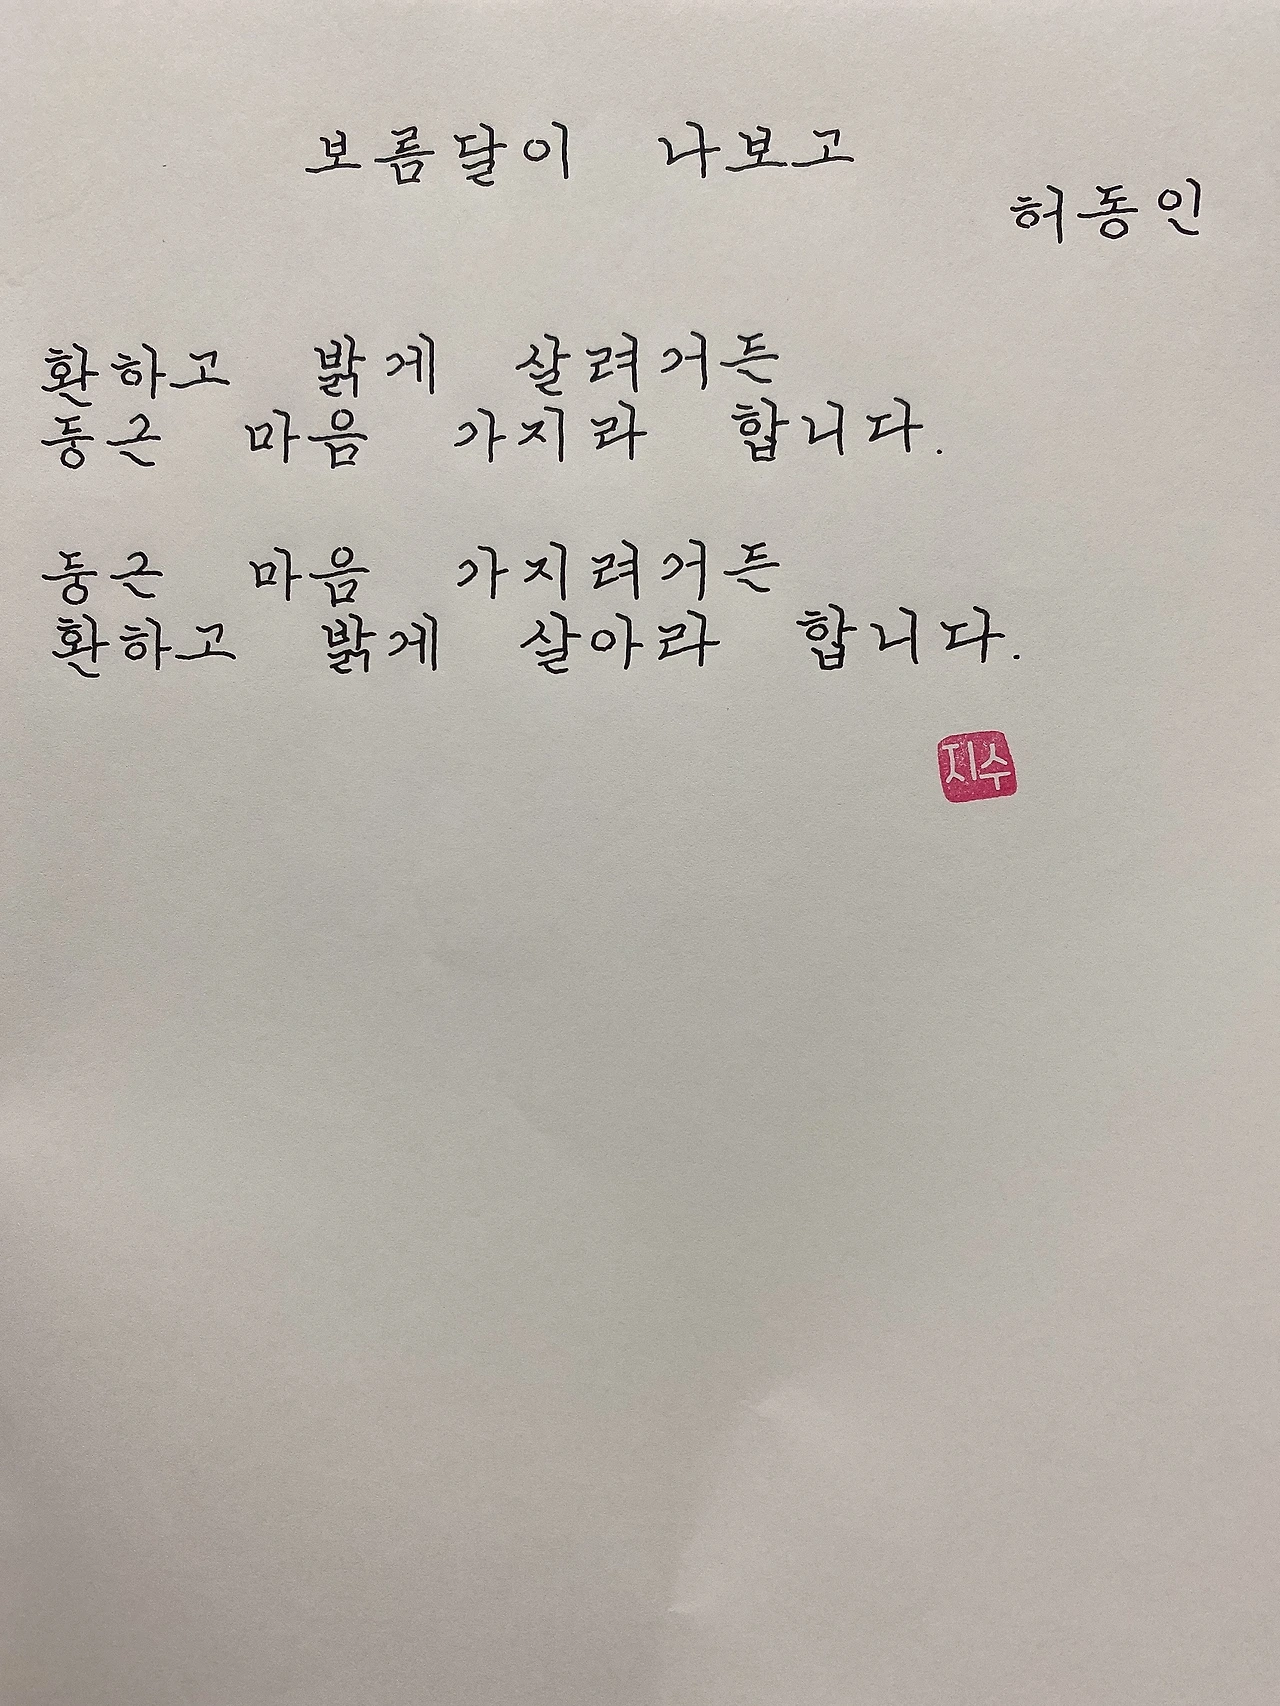 보름달이 나보고
허동인
환하고 밝게 살려거든
둥근 마음 가지라 합니다.
둥근 마음 가지려거든
환하고 밝게 살아라 합니다.
지수